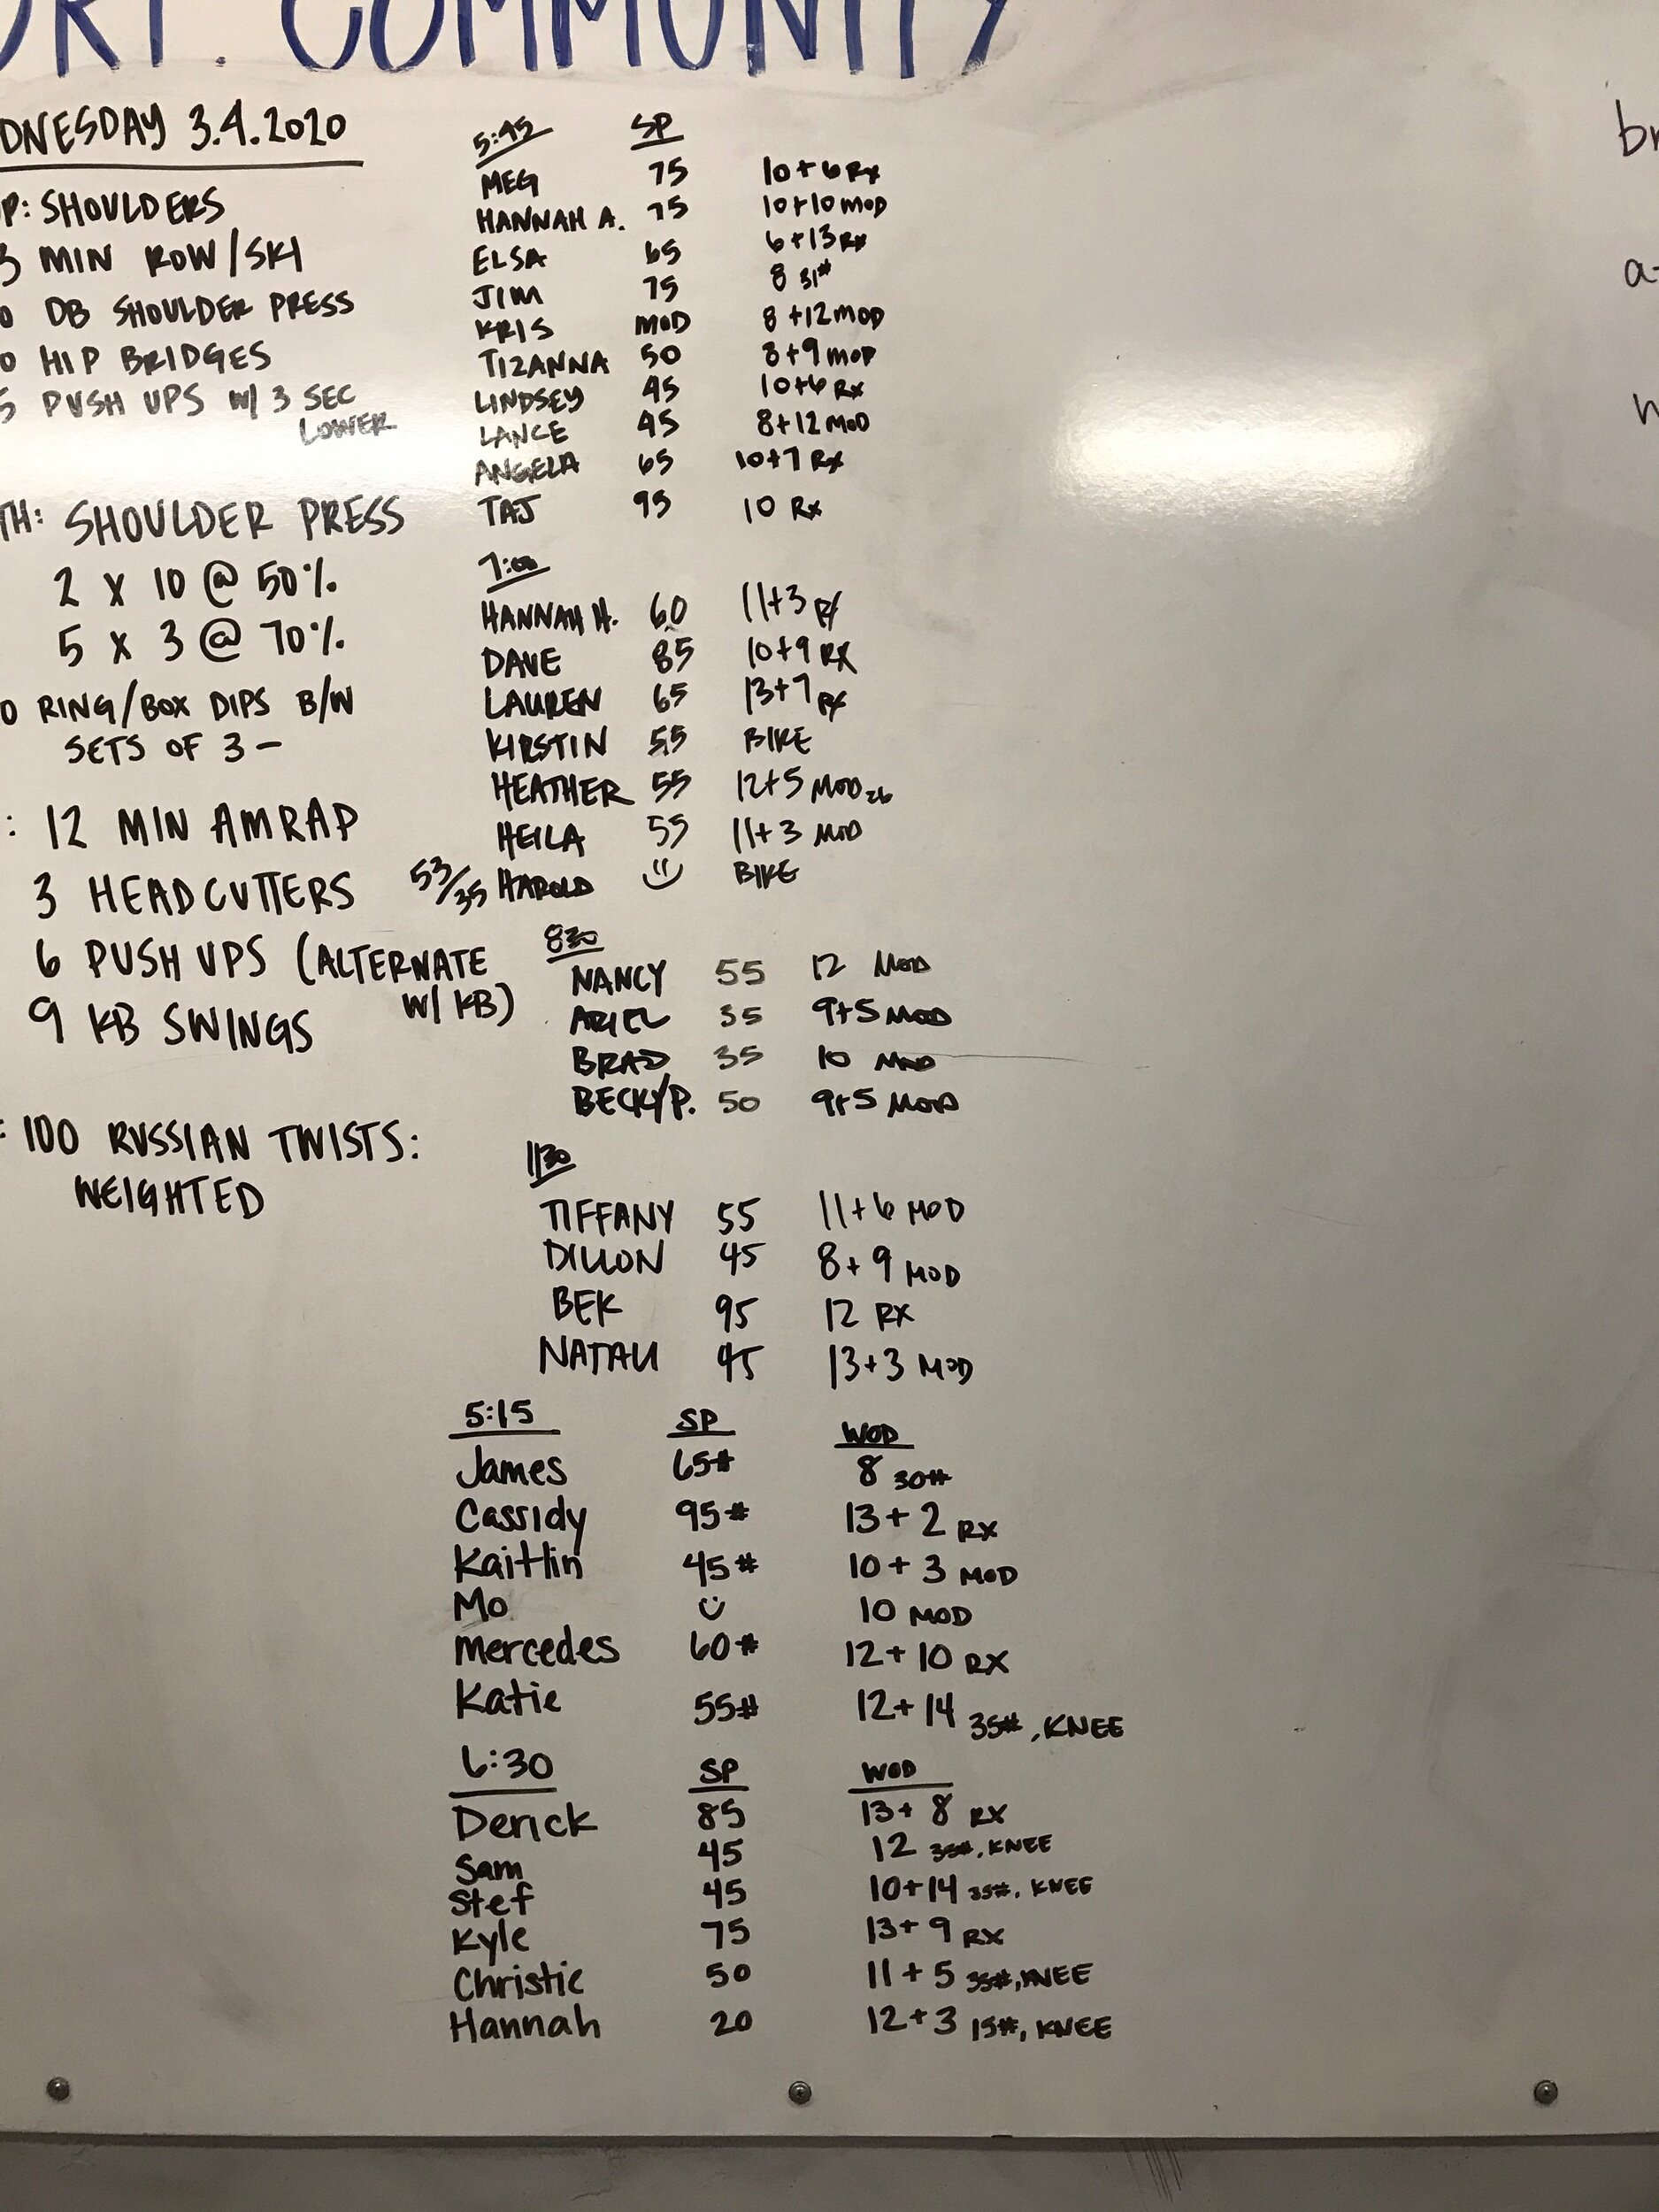 COMMUNITY
DNESDAY 3.4.2020
P: SHOULDERS
3 MIN ROW/SKI
0 DB SHOULDER PRESS
0 HIP BRIDGES
5 PUSH UPS W/ 3 SEC
LOWER
TH: SHOULDER PRESS
2 X 10 @ 50%
5 X 3 @ 70%
0 RING/BOX DIPS B/W
SETS OF 3 -
: 12 MIN AMRAP
3 HEADCUTTERS 53/35
6 PUSH UPS (ALTERNATE
W/ KB)
9 KB SWINGS
: 100 RUSSIAN TWISTS:
WEIGHTED
5:45 SP
MEG 75 10+6 RX
HANNAH A. 75 10+10 MOD
ELSA 65 6+13 RX
JIM 75 8 31#
KRIS MOD 8+12 MOD
TIZANNA 50 8+9 MOD
LINDSEY 45 10+6 RX
LANCE 45 8+12 MOD
ANGELA 65 10+7 RX
TAJ 95 10 RX
7:00
HANNAH H. 60 11+3 RX
DAVE 85 10+9 RX
LAUREN 65 13+7 RX
KIRSTIN 55 BIKE
HEATHER 55 12+5 MOD 26
HEILA 55 11+3 MOD
HAROLD BIKE
830
NANCY 55 12 MOD
ARIEL 35 9+5 MOD
BRAD 35 10 MOD
BECKY P. 50 9+5 MOD
1130
TIFFANY 55 11+6 MOD
DILLON 45 8+9 MOD
BEK 95 12 RX
NATALI 45 13+3 MOD
5:15 SP WOD
James 65# 8 30#
Cassidy 95# 13+2 RX
Kaitlin 45# 10+3 MOD
Mo 10 MOD
Mercedes 60# 12+10 RX
Katie 55# 12+14 35#, KNEE
6:30 SP WOD
Derick 85 13+8 RX
Sam 45 12 35#, KNEE
Stef 45 10+14 35#, KNEE
Kyle 75 13+9 RX
Christie 50 11+5 35#, KNEE
Hannah 20 12+3 15#, KNEE
br
a